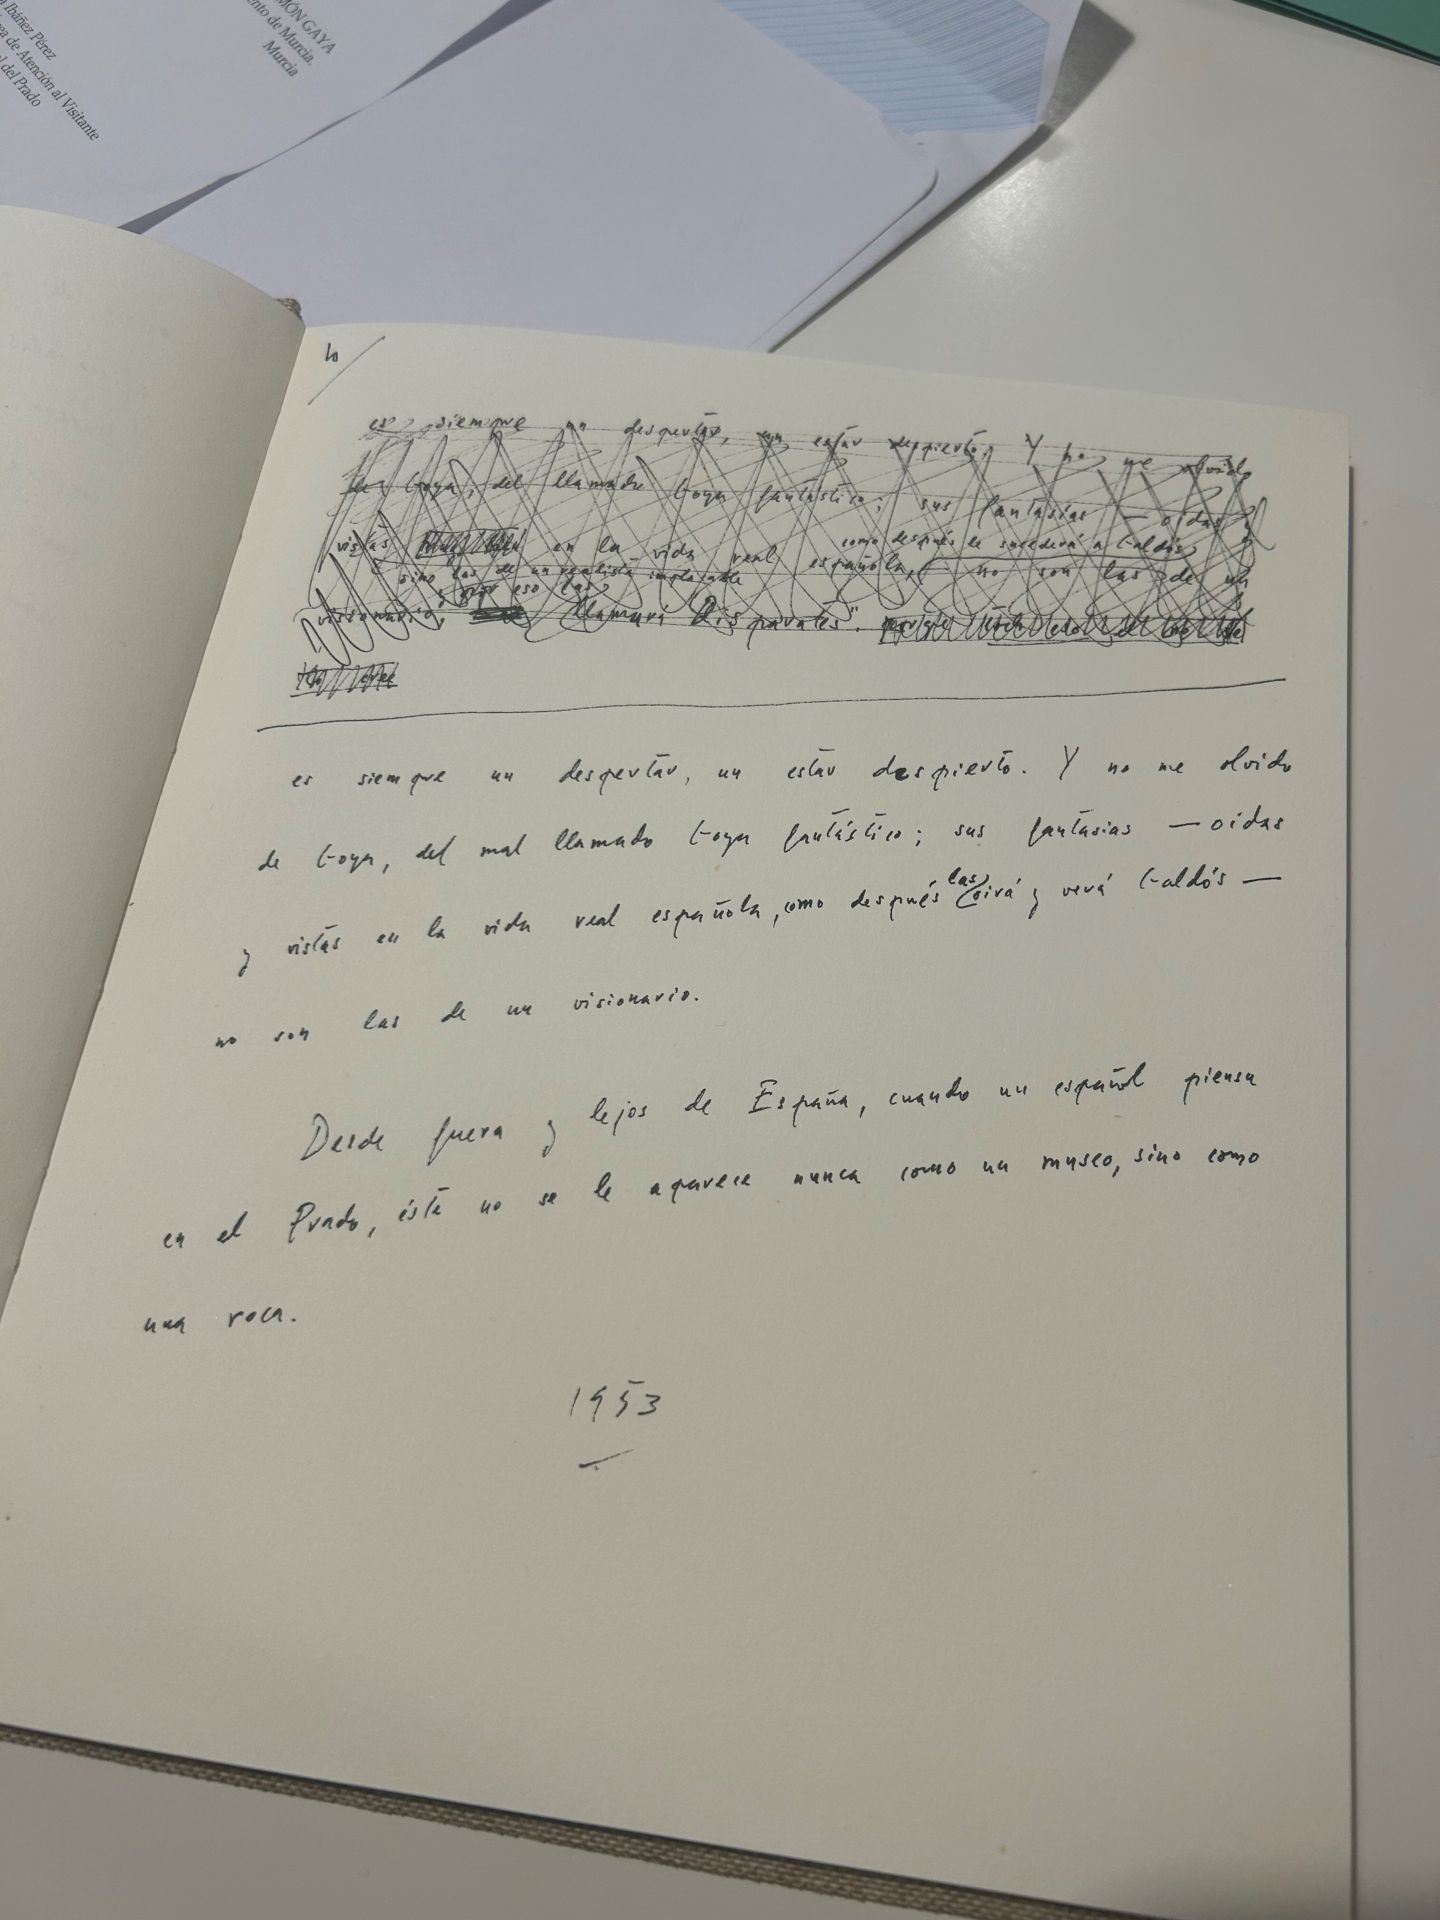 Ibáñez Pérez
ea de Atención al Visitante
l del Prado
MÓN GAYA
ento de Murcia.
Murcia
10
es siempre un despertar, un estar despierto. Y no me olvido
de Goya, del llamado Goya fantástico; sus fantasías — oidas y
como después le sucederá a Galdós,
vistas en la vida real española, — no son las de un
sino las de un realista implacable
y por eso las
visionario, llamará Disparates".
es siempre un despertar, un estar despierto. Y no me olvido
de Goya, del mal llamado Goya fantástico; sus fantasias — oidas
las
y vistas en la vida real española, como después oirá y verá Galdós —
no son las de un visionario.
Desde fuera y lejos de España, cuando un español piensa
en el Prado, éste no se le aparece nunca como un museo, sino como
una roca.
1953